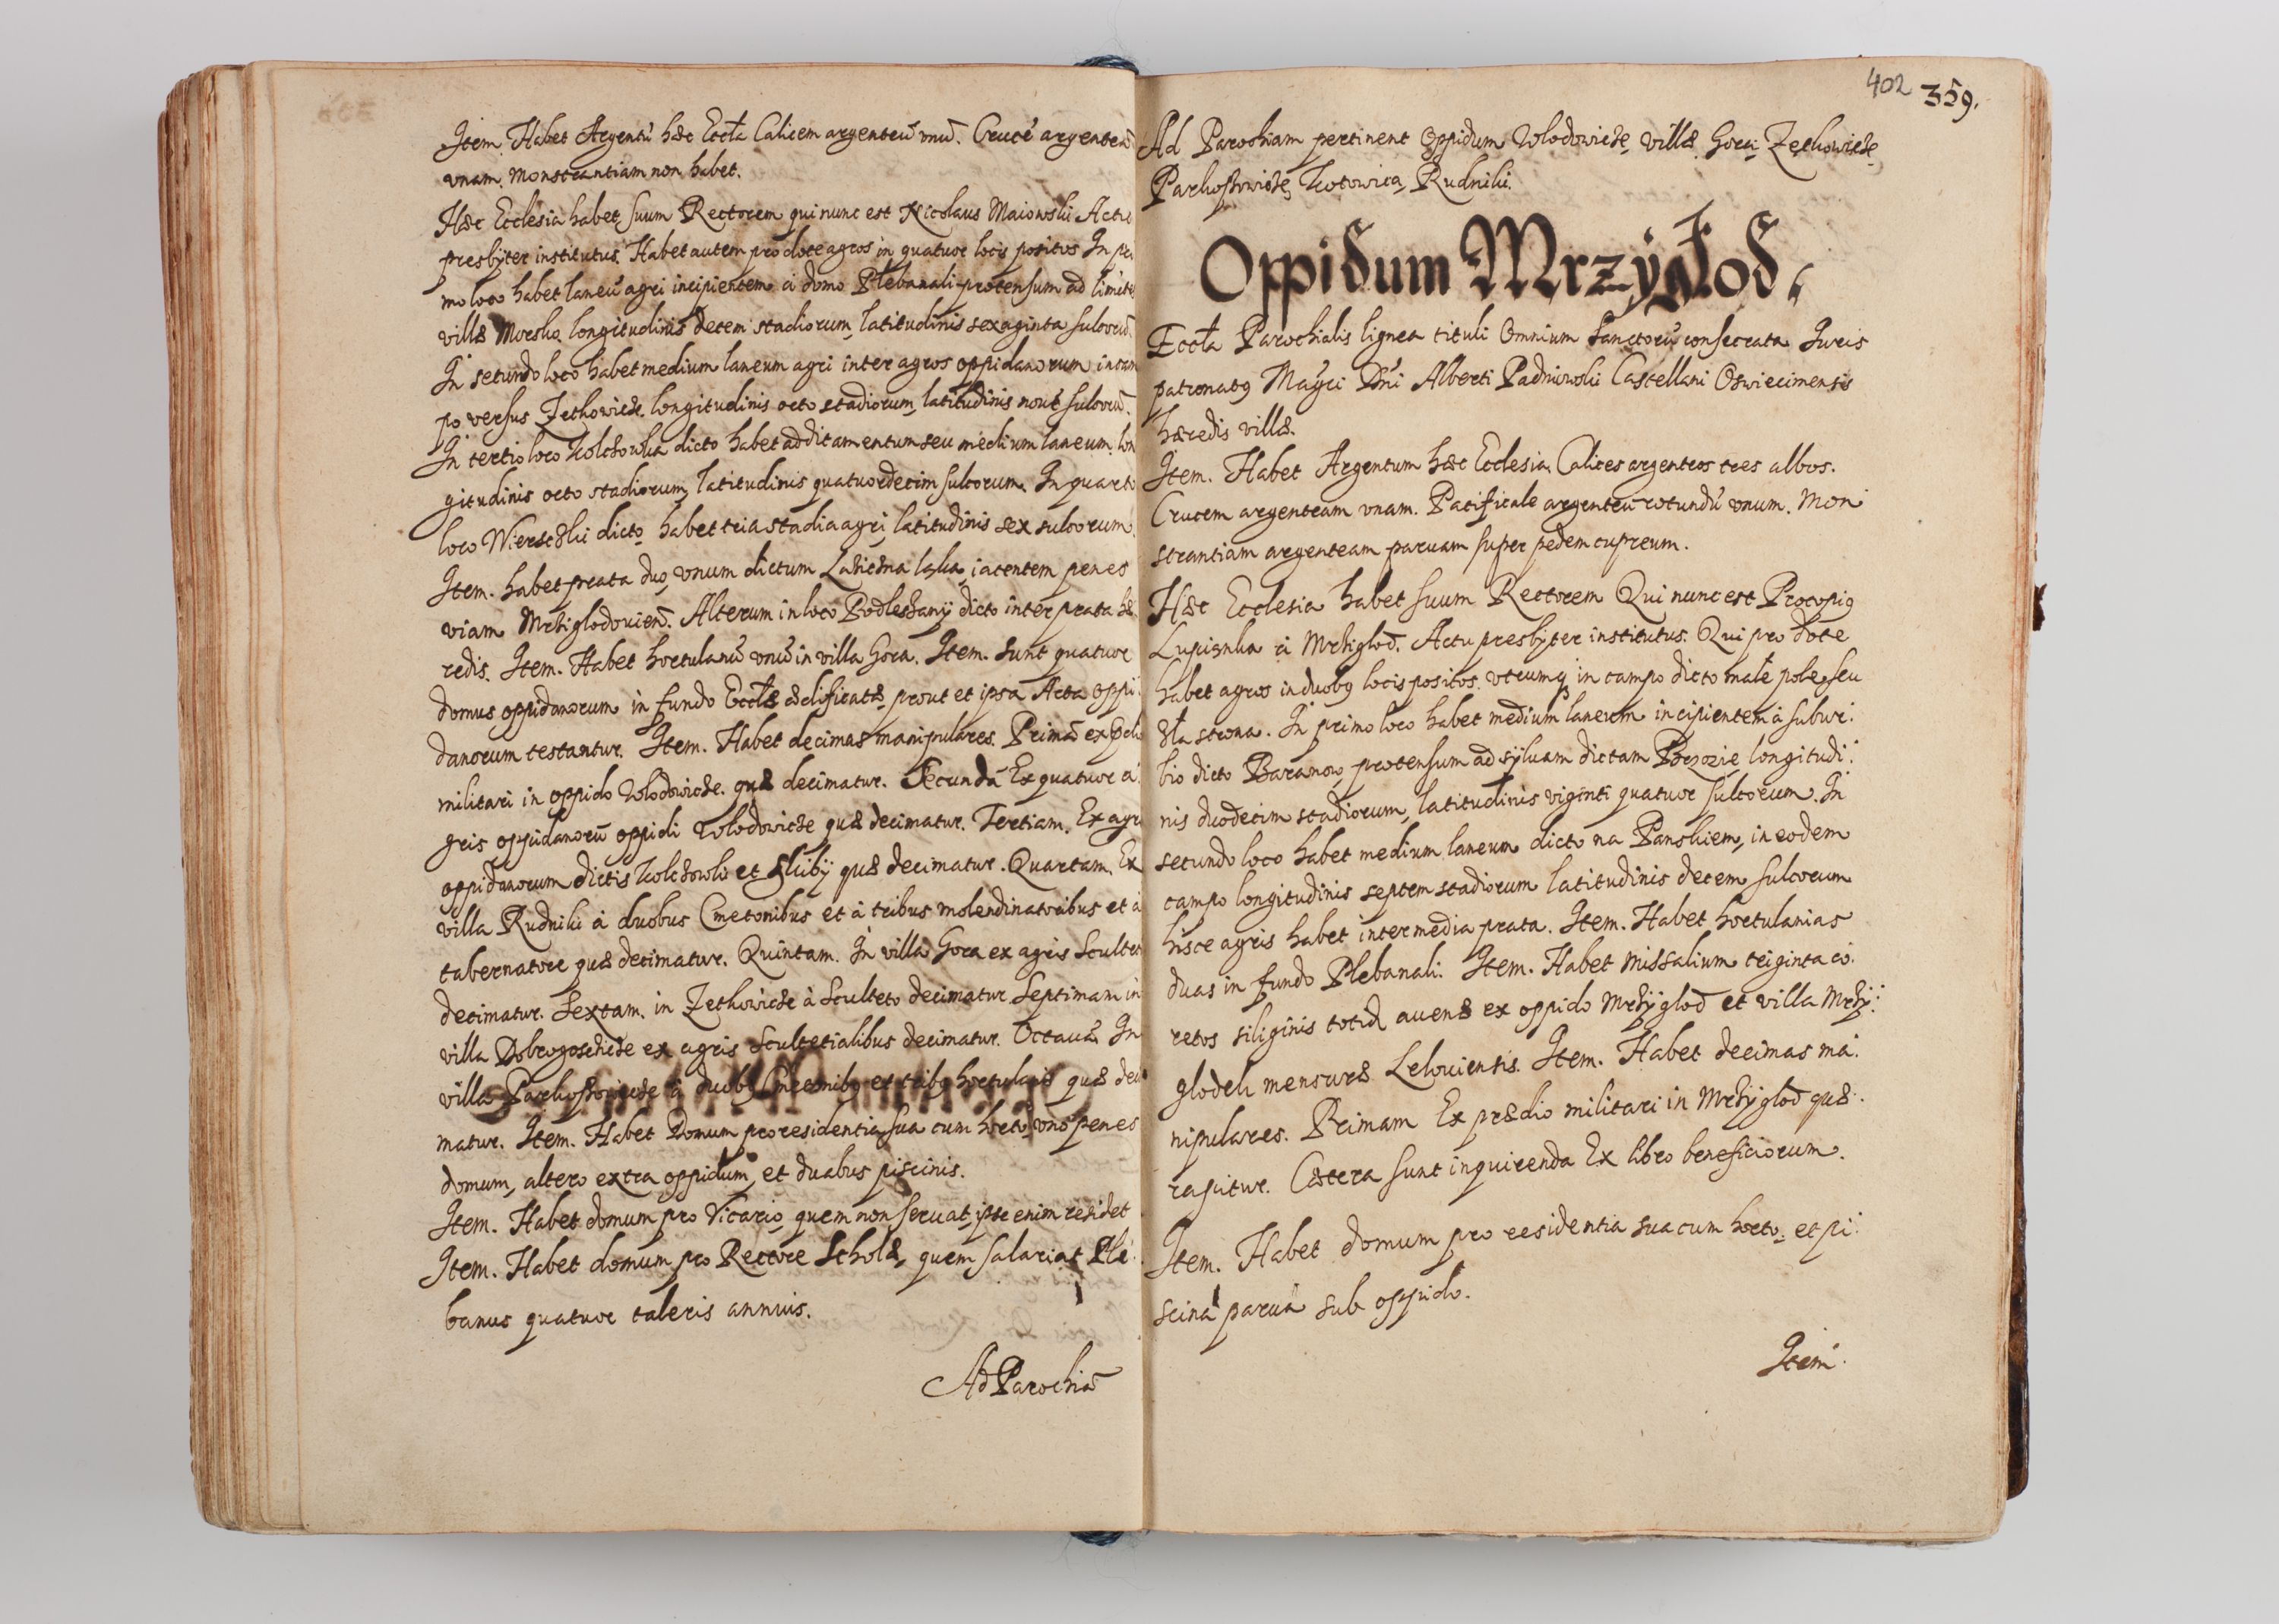 Item. Habet Argentũ hæc Eccła Calicem argenteũ vnũ. Crucẽ argenteã
vnam. Monstrantiam non habet.
Hæc Ecclesia habet suum Rectorem qui nunc est Nicolaus Maiowski Actu
presbÿter institutus. Habet autem pro dote agros in quatuor locis positos In pri
mo loco habet laneũ agri incipientem à domo Plebanali protensum ad limites
villæ Morsko longitudinis decem stadiorum, latitudinis sexaginta sulcorũ.
In secundo loco habet medium laneum agri inter agros oppidanorum in cam
po versus Zethowicze longitudinis octo stadiorum, latitudinis nouẽ sulcorũ.
In tertio loco Kolczowka dicto habet additamentum seu medium laneum lon
gitudinis octo stadiorum, latitudinis quatuordecim sulcorum. In quarto
loco Wierszchi dicto habet tria stadia agri, latitudinis sex sulcorum.
Item. habet prata duo, vnum dictum laka, iacentem penes
viam Mrziglodouieñ. Alterum in loco Podleszany dicto inter prata hæ
redis. Item. Habet hortulanũ vnũ in villa Gora. Item. sunt quatuor
domus oppidanorum in fundo Eccłæ ædificatæ, prout et ipsa Acta oppi
danorum testantur. Item. Habet decimas manipulares. Primã ex prædio
militari in oppido Wlodowicze. quæ decimatur. Secundã Ex quatuor a
gris oppidanorũ oppidi Wlodowicze quæ decimatur. Tertiam. Ex agris
oppidanorum dictis Kolczowki et Sluby quæ decimatur. Quartam. Ex
villa Rudniki à duobus Cmetonibus et à tribus molendinatoribus et à
tabernatore quæ decimatur. Quintam. In villa Gora ex agris Sculteti
decimatur. Sextam. in Zethowicze à Sculteto decimatur Septimam in
villa Dobrogoschicze ex agris Scultetialibus decimatur. Octauã In
villa Parkoszowicze à duobꝰ Cmetonibꝰ et tribꝰ hortulanis quæ deci
matur. Item. Habet Domum pro residentia sua cum horto vno penes
domum, altero extra oppidum, et duabus piscinis.
Item. Habet domum pro Vicario quem non seruat, ipse enim residet
Item. Habet domum pro Rectore Scholæ, quem salariat Ple
banus quatuor taleris annuis.
Ad Parochiã
402 359.
Ad Parochiam pertinent Oppidum Wlodowicze, villæ Gora, Zethowicze
Parkoszowicze, Kotowica, Rudniki.
Oppidum Mrzygłod.
Eccła Parochialis lignea tituli Omnium Sanctorũ consecrata Iuris
patronatꝰ Mag̃ci Dñi Alberti Padniewski Castellani Oswiecimensis
hæredis villæ.
Item. Habet Argentum hæc Ecclesia Calices argenteos tres albos.
Crucem argenteam vnam. Pacificale argenteũ rotundũ vnum. Mon
strantiam argenteam paruam super pedem cupreum.
Hæc Ecclesia habet suum Rectorem Qui nunc est Procopiꝰ
Lupianka à Mrziglod. Actu presbÿter institutus. Qui pro dote
habet agros in duobꝰ locis positos. vtrumqꝫ in campo dicto małe pole seu
zła strona. In primo loco habet medium laneum incipientem à subur
bio dicto Baranow, protensum ad sÿluam dictam Brzozie longitudi
nis duodecim stadiorum, latitudinis viginti quatuor sulcorum. In
secundo loco habet medium laneum dicto na Panskiem, in eodem
campo longitudinis septem stadiorum latitudinis decem sulcorum
hisce agris habet intermedia prata. Item. Habet hortulanias
duas in fundo Plebanali. Item. Habet missalium triginta co
retos siliginis totid auenæ ex oppido Mrzÿglod et villa Mrzÿ
glodek mensuræ Lelouiensis. Item. Habet decimas ma
nipulares. Primam Ex prædio militari in Mrzÿglod quæ
rapitur. Cætera sunt inquirenda Ex libro beneficiorum.
Item. Habet domum pro residentia sua cum horto, et pi
scina parua sub oppido.
Item